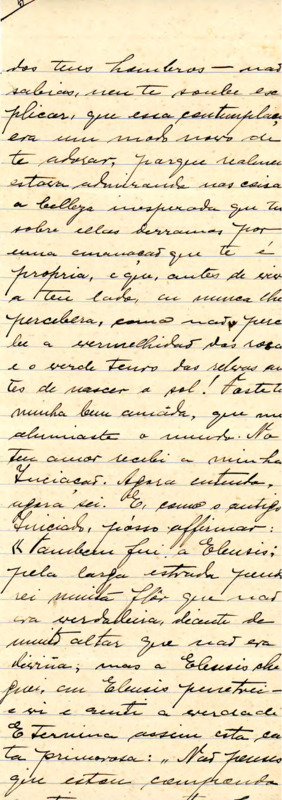 dos teus hombros — não
sabias, nem te soube ex
plicar, que essa contemplaç
era um modo novo de
te adorar, parque realmen
estava admirando nas coisa
a belleza inesperada que tu
sobre ellas derramas por
uma emanação que te é
propria, e que, antes de viv
a teu lado, eu nunca lhe
percebera, como não perc
be a vermelhidão das rosa
e o verde tenro das relvas an
tes de nascer o sol! Foste tu
minha bem amada, que me
alumiaste o mundo. No
teu amor recebi a minha
Iniciação. Agora entendo,
agora sei. E, como o antigo
Iniciado, posso affirmar:
« Tambem fui a Eleusis;
pela larga estrada pendu
rei muita flôr que não
era verdadeira, deante de
muito altar que não era
divino; mas a Eleusis che
guei, em Eleusis penetrei —
e vi e senti a verdade
E termina assim esta ca
ta primorosa: „ Não penses
que estou compondo